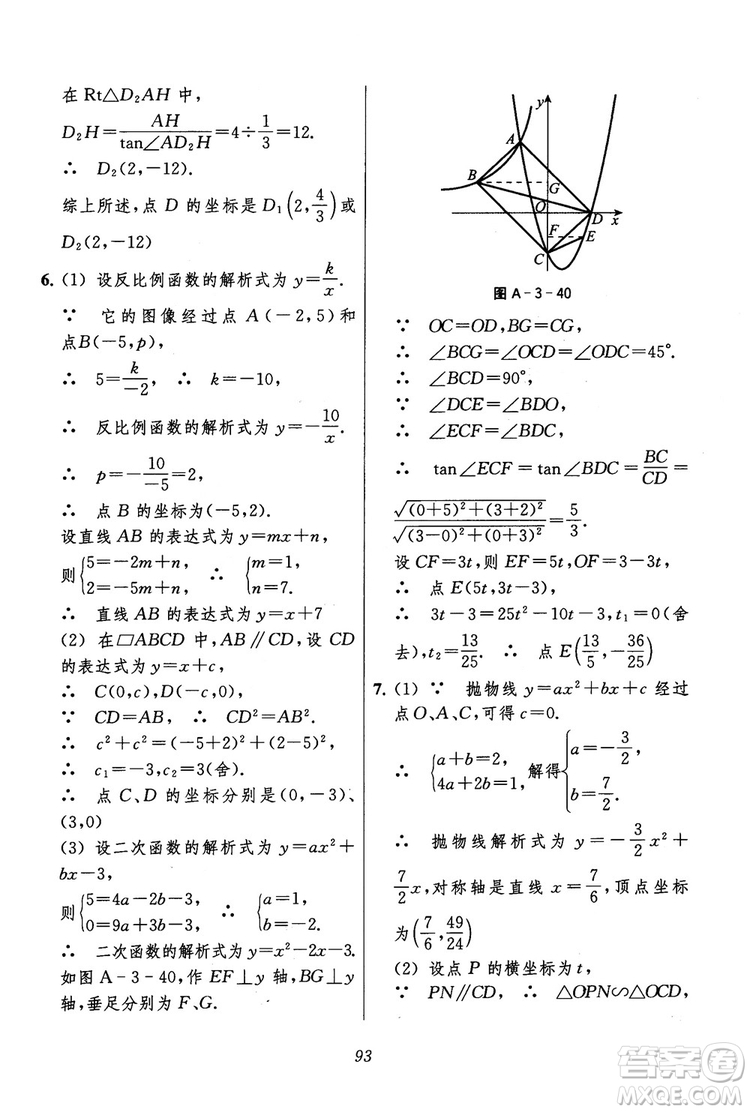 在 Rt△D₂AH 中，
D₂H=AH/tan∠AD₂H=4÷1/3=12.
∴ D₂(2,-12).
综上所述，点 D 的坐标是 D₁(2,4/3)或
D₂(2,-12)
6. (1) 设反比例函数的解析式为 y=k/x.
∵ 它的图像经过点 A(-2,5)和
点B(-5,p),
∴ 5=k/-2, ∴ k=-10,
∴ 反比例函数的解析式为 y=-10/x.
∴ p=-10/-5=2,
∴ 点 B 的坐标为(-5,2).
设直线 AB 的表达式为 y=mx+n,
则{5=-2m+n, 2=-5m+n, ∴ {m=1, n=7.
∴ 直线 AB 的表达式为 y=x+7
(2) 在▱ABCD 中,AB∥CD,设 CD
的表达式为 y=x+c,
∴ C(0,c),D(-c,0).
∵ CD=AB, ∴ CD²=AB².
∴ c²+c²=(-5+2)²+(2-5)².
∴ c₁=-3,c₂=3(舍).
∴ 点 C、D 的坐标分别是(0,-3)、
(3,0)
(3) 设二次函数的解析式为 y=ax²+
bx-3,
则{5=4a-2b-3, 0=9a+3b-3, ∴ {a=1, b=-2.
∴ 二次函数的解析式为 y=x²-2x-3.
如图 A-3-40,作 EF⊥y 轴,BG⊥y
轴,垂足分别为 F、G.
y
A
B
G
O
D
x
F
E
C
图 A-3-40
∵ OC=OD,BG=CG,
∴ ∠BCG=∠OCD=∠ODC=45°.
∴ ∠BCD=90°,
∵ ∠DCE=∠BDO,
∴ ∠ECF=∠BDC.
∴ tan∠ECF=tan∠BDC=BC/CD=
√((0+5)²+(3+2)²)/√((3-0)²+(0+3)²)=5/3.
设 CF=3t,则 EF=5t,OF=3-3t,
∴ 点 E(5t,3t-3),
∴ 3t-3=25t²-10t-3,t₁=0(舍
去),t₂=13/25. ∴ 点 E(13/5,-36/25)
7. (1) ∵ 抛物线 y=ax²+bx+c 经过
点 O、A、C,可得 c=0.
∴ {a+b=2, 4a+2b=1, 解得{a=-3/2, b=7/2.
∴ 抛物线解析式为 y=-3/2x²+
7/2x,对称轴是直线 x=7/6,顶点坐标
为(7/6,49/24)
(2) 设点 P 的横坐标为 t,
∵ PN∥CD, ∴ △OPN∽△OCD,
93
答案圈